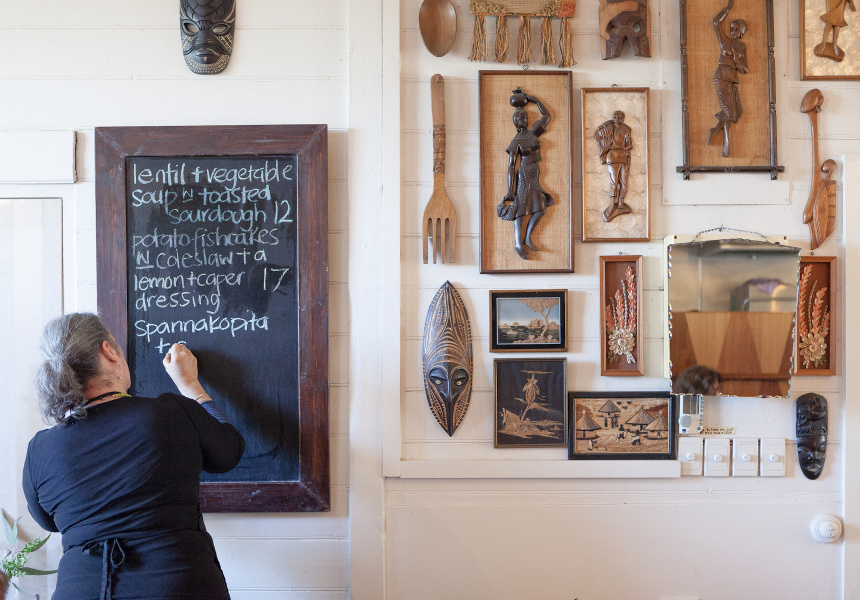 lentil + vegetable
soup N toasted
Sourdough 12
potato fishcakes
N coleslaw + a
lemon + caper 17
dressing
spannakopita